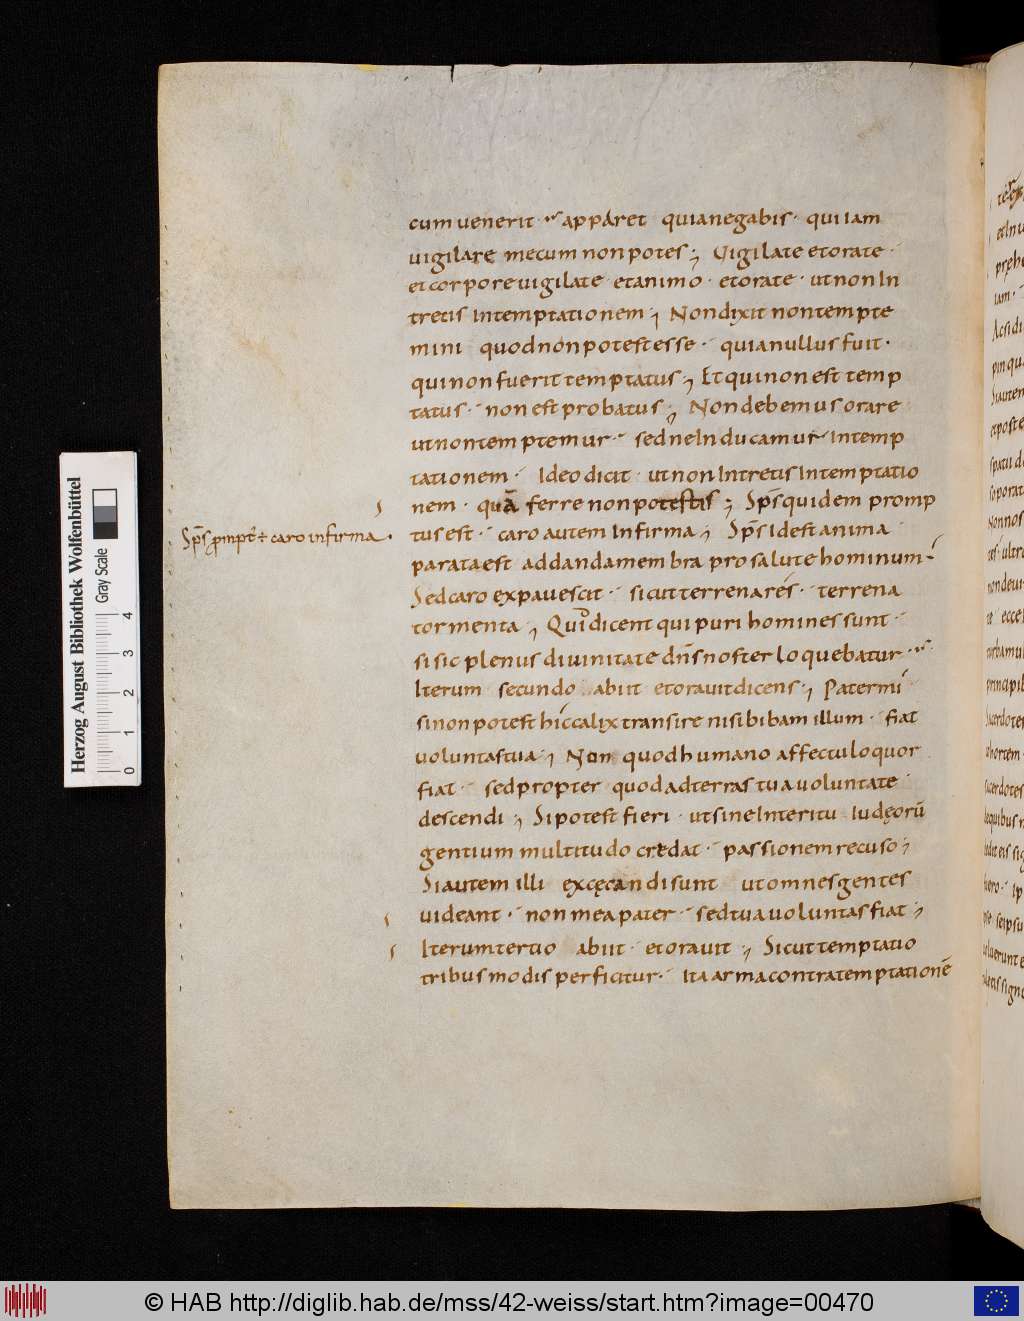 cum uenerit apparet quia negabis · qui iam
uigilare mecum non potes ; Uigilate et orate ·
et corpore uigilate · et animo · et orate · ut non In
tretis Intemptationem ; Non dixit non tempte
mini quod non potest esse · quia nullus fuit ·
qui non fuerit temptatus ; Et qui non est temp
tatus · non est probatus ; Non debemus orare
ut non temptemur · sed ne Inducamur Intemp
tationem · Ideo dicit · ut non Intretis Intemptatio
nem · quā ferre non potestis ; Sp̄s quidem promp
tus est · caro autem Infirma ; Sp̄s Idest anima
parata est ad dandam membra pro salute hominum ·
Sed caro expauescit · sicut terrena rés · terrena
tormenta ; Quid dicent qui puri homines sunt ·
si sic plenus diuinitate dn̄s noster loquebatur ·
Iterum secundo abiit et orauit dicens ; Pater mí
si non potest híc calix transire nisi bibam illum · fiat
uoluntas tua ; Non quod humano affectu loquor
fiat · sed propter quod ad terras tua uoluntate
descendi ; Si potest fieri · ut sine Interitu Iudęorū
gentium multitudo credat · passionem recuso ;
Si autem illi excęcandi sunt ut omnes gentes
uideant · non mea pater · sed tua uoluntas fiat ;
Iterum tertio abiit · et orauit ; Sicut temptatio
tribus modis perficitur · Ita arma contra temptationē
Sp̄s prompt' ÷ caro infirma ·
Herzog August Bibliothek Wolfenbüttel
Gray Scale
0 1 2 3 4
© HAB http://diglib.hab.de/mss/42-weiss/start.htm?image=00470